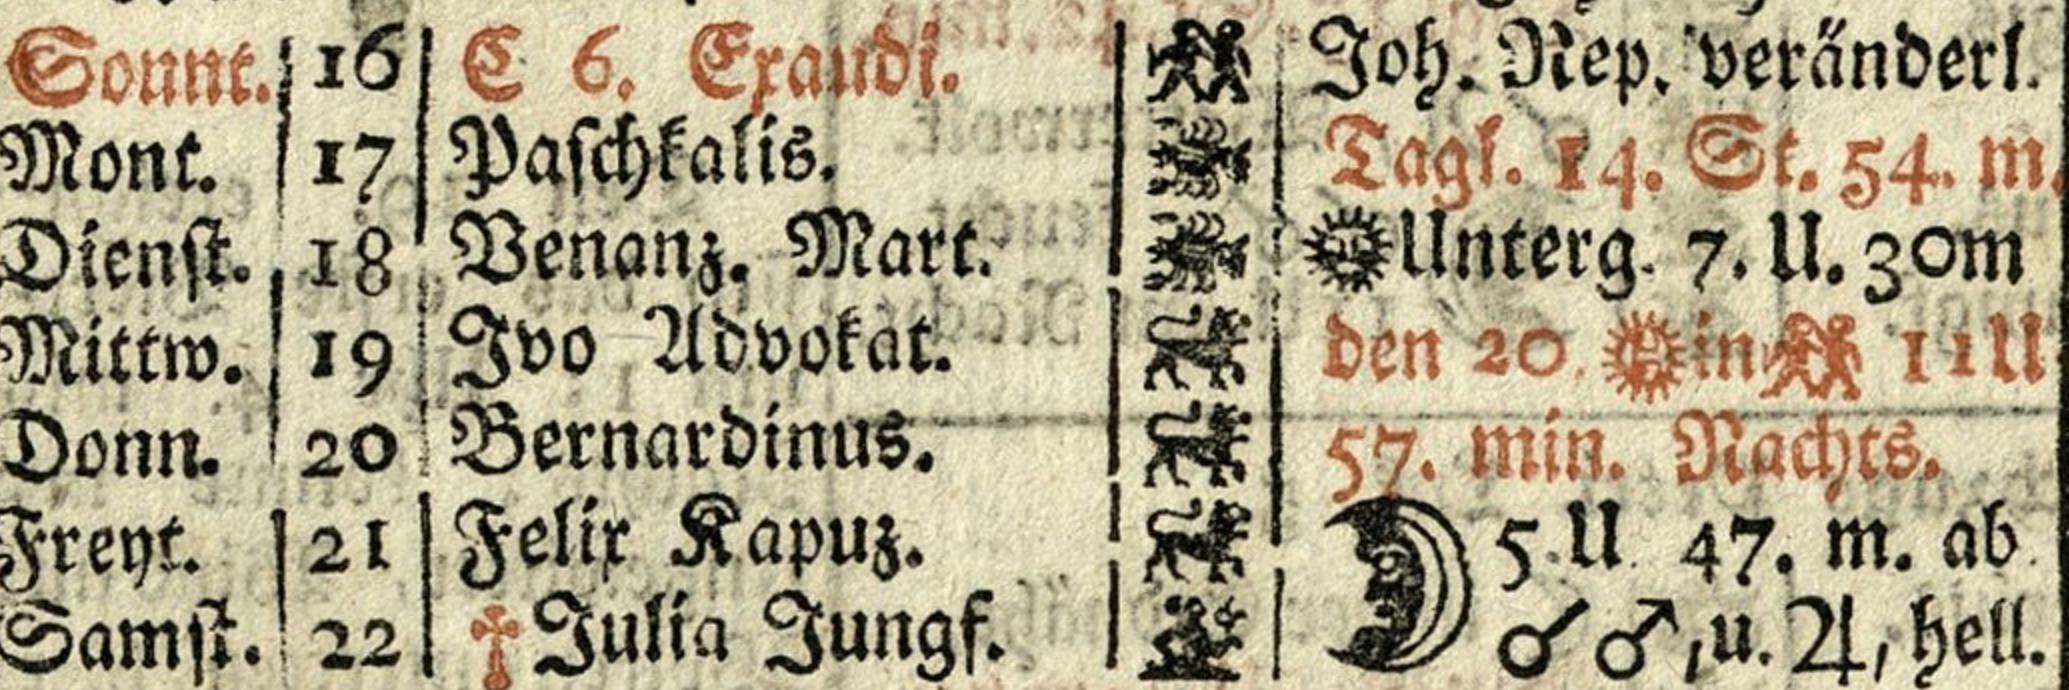 Sonnt. 16 C 6. Exaudi. Joh. Nep. veränderl.
Mont. 17 Paſchkalis. Tagl. 14. St. 54. m.
Dienſt. 18 Venanz. Mart. Unterg. 7. U. 30m
Mittw. 19 Ivo Advokat. den 20. in 11U
Donn. 20 Bernardinus. 57. min. Nachts.
Freyt. 21 Felix Kapuz. 5 U 47. m. ab
Samſt. 22 †Julia Jungf. ☌ ♂, u. ♃, hell.